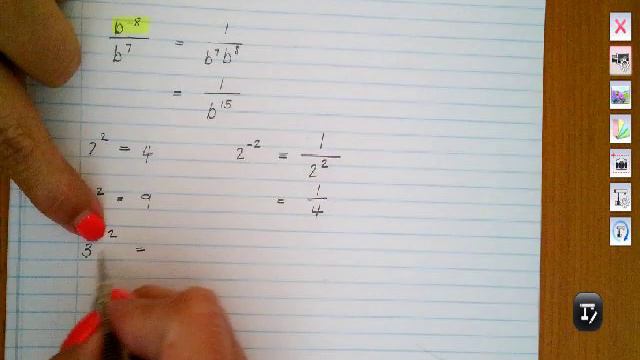 b⁻⁸/b⁷ = 1/b⁷b⁸
= 1/b¹⁵
2² = 4 2⁻² = 1/2²
² = 9 = 1/4
3 ² =